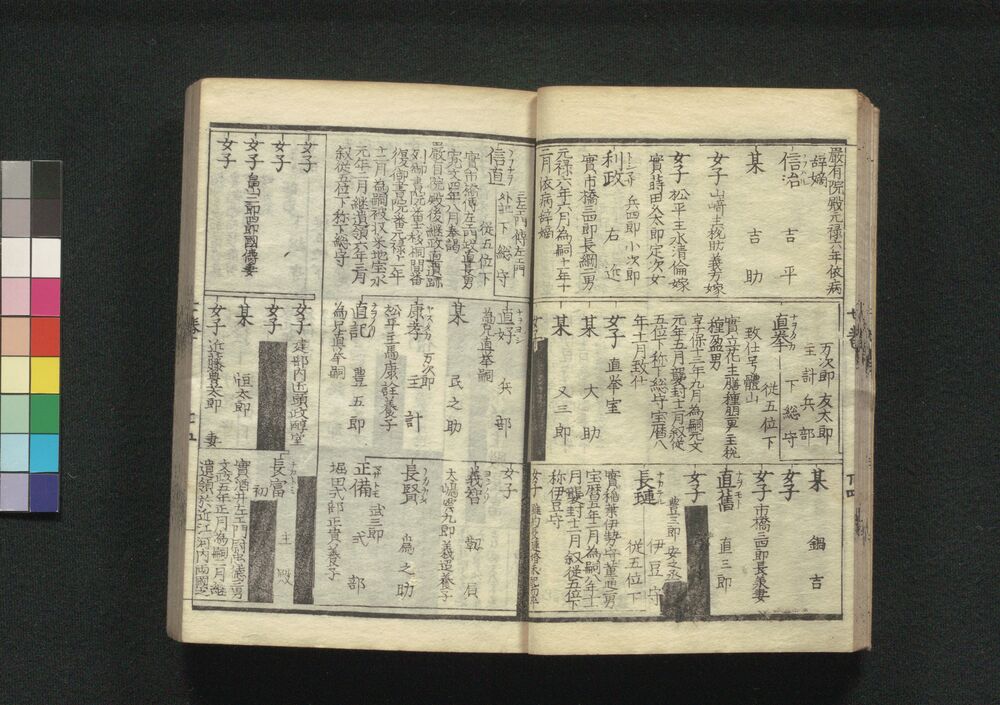 嚴有院殿元禄六年依病
辞嫡
信治 吉平
某 吉助
女子 山﨑主税助義方嫁
女子 松平主水清倫嫁
實時田久太郎定次女
利政 右近
兵四郎 小次郎
實市橋三四郎長綱二男
元禄六年六月為嗣十年十
二月依病辞嫡
万次郎 友太郎
主計 兵部
直挙 下総守
ナヲタカ
従五位下
致仕号體山
享保十三年九月為嗣元文
元年五月襲封十二月叙従
五位下称下総守宝暦八
年十一月致仕
女子 直挙室
某 大助
某 又三郎
女子
某 鍋吉
女子
女子 市橋三四郎長兼妻
直舊 直三郎
女子
豊三郎 安之丞
長璉 伊豆守
ナカテル
従五位下
實稲葉伊勢守董通二男
宝暦五年二月為嗣八年十一
月襲封十二月叙従五位下
称伊豆守
女子
三左エ門 傳左エ門
信直 下総守
ノフナヲ
従五位下
實市橋傳左エ門政直長男
寛文四年八月奉謁
嚴有院殿後継政直遺跡
列御書院番士移桐間番
復御書院番元禄十二年
十二月為嗣被収采地宝永
元年二月継遺領六年三月
叙従五位下称下総守
女子
女子
女子 畠山三郎四郎國傳妻
女子
直好 兵部
ナヲヨシ
為兄直挙嗣
某 民之助
康孝 主計
ヤスタカ
万次郎
松平主馬康詮養子
直記 豊五郎
為兄直挙嗣
女子 建部内匠頭政醇室
女子
某 恒太郎
女子 近藤豊太郎妻
女子
義智 靱負
大嶋雲九郎義逵養子
長賢 為之助
正備 式部
式三郎
堀田式部正貴養子
長富 主殿
ナカトミ
初
實酒井左エ門尉忠徳三男
文政五年正月為嗣二月継
遺領於近江河内両國